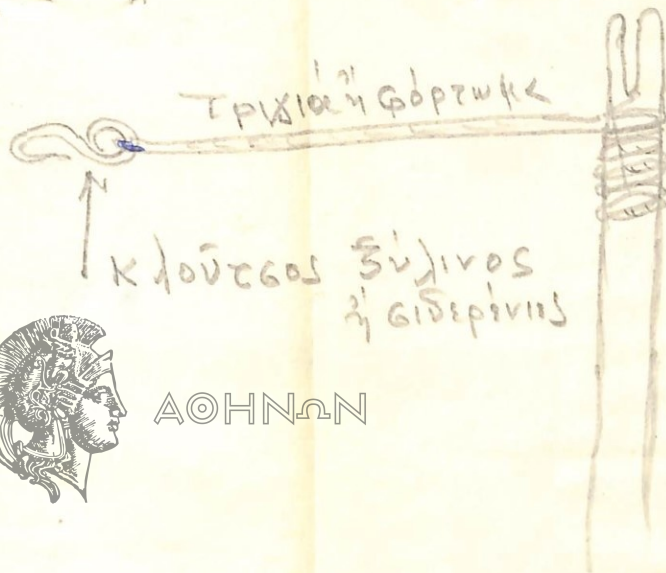 Τριχιά ἤ φόρτωμα
κλούτσος ξύλινος
ἤ σιδερένιος
ΑΘΗΝΩΝ